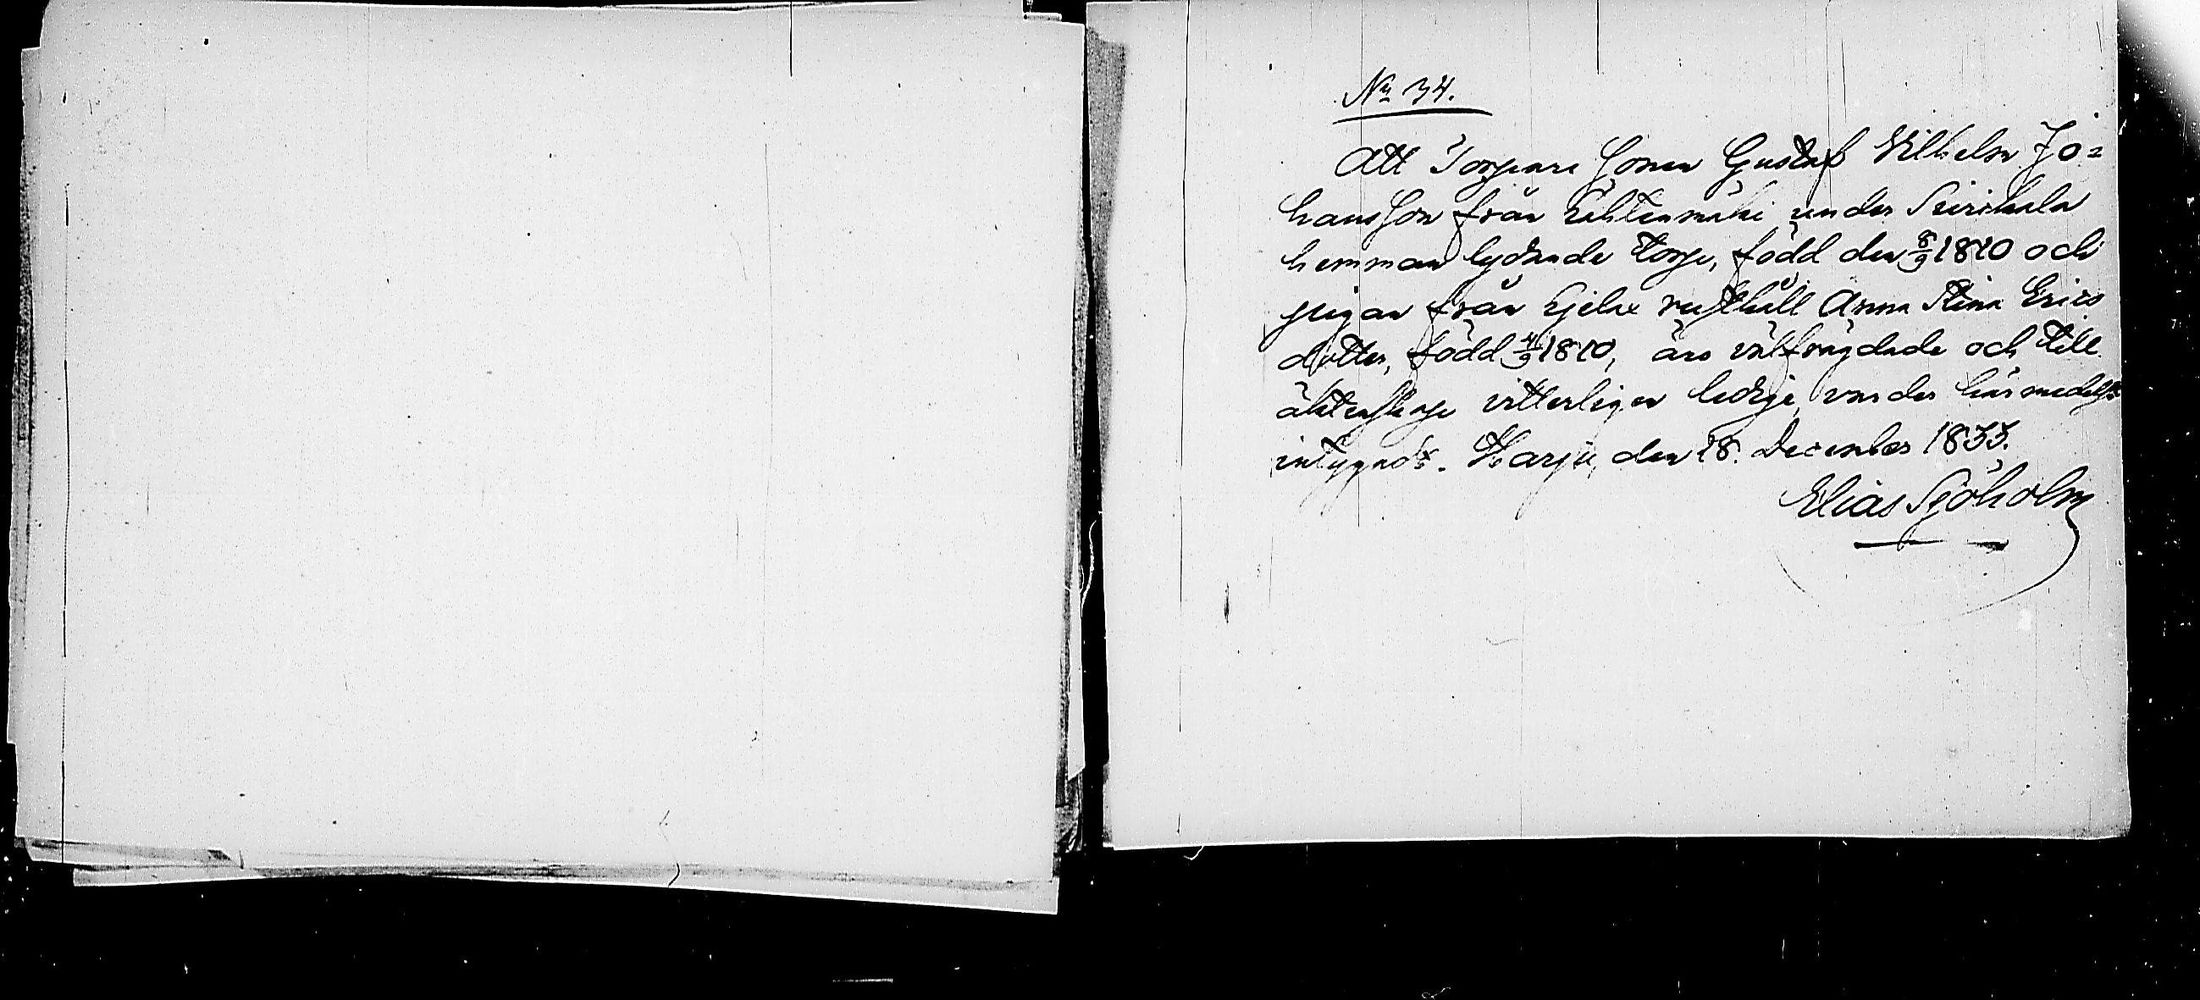 No 34.
Att Torpare Sonen Gustaf Vilhelm Jo=
hansson från Lähtenmäki under Siirikala
hemman lydande torp, född den 8/9 1810 och
pigan från Gjelax rusthåll Anna Stina Erics
dotter, född 1810, äro välfrägdade och till
äktenskap vitterligen ledige, varder härmedelst
intygadt. Harju, den 18. December 1833.
Elias Sjöholm